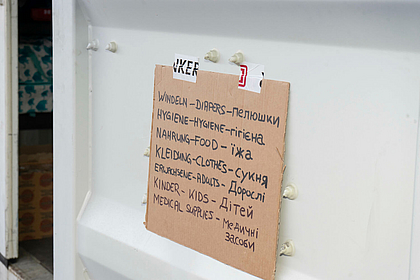 NKER
WINDELN-DIAPERS-пелюшки
HYGIENE-HYGIENE-гігієна
NAHRUNG-FOOD-їжа
KLEIDUNG-CLOTHES-сукня
ERWACHSENE-ADULTS-Дорослі
KINDER-KIDS-Дітей
MEDICAL SUPPLIES-Медичні
засоби